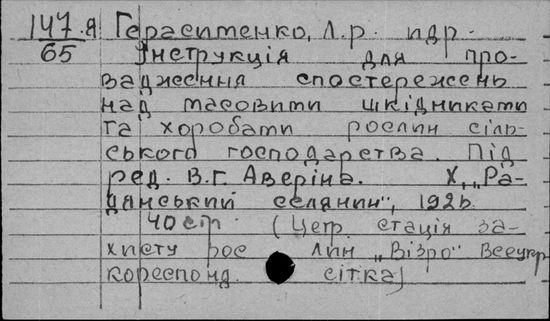 147.Я Герасименко, Л.р. пдр.
65 Інструкція для про-
вадження спостережень
над масовими шкідниками
та хоробами рослин сіль-
ського господарства. Під
ред. В.Г. Аверіна. Х., „Ра-
дянський селянин", 1926.
40стр. (Центр. стація за-
хисту рос лин „Візро" Всеукр
кореспонд. сітка)